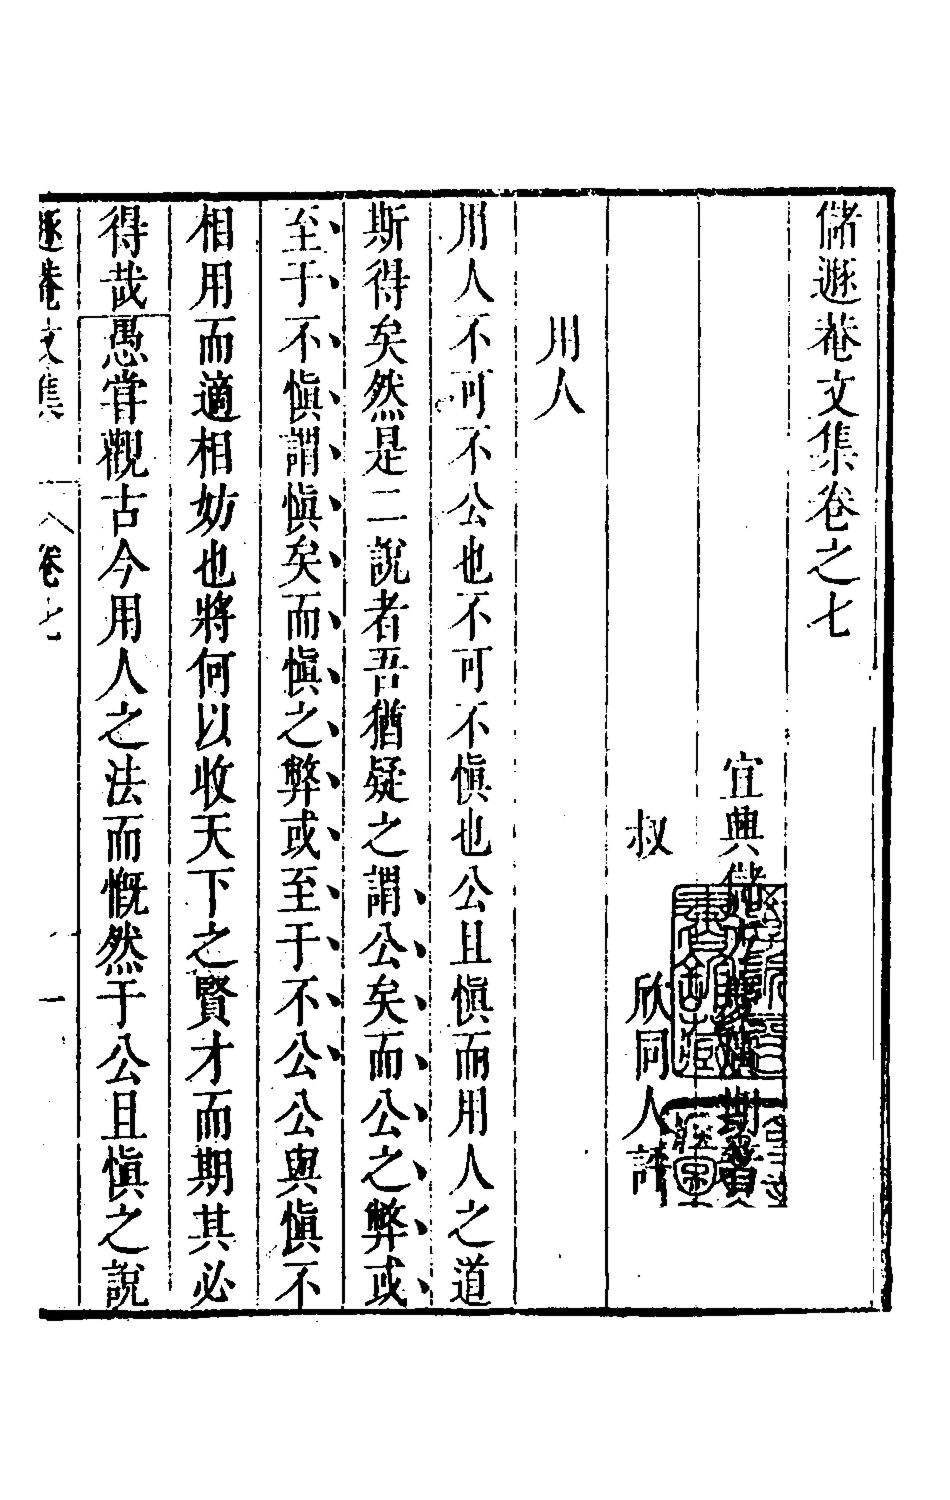 儲遯菴文集卷之七
宜興儲方慶廣期著
叔　欣同人評
用人
用人不可不公也不可不慎也公且慎而用人之道
斯得矣然是二說者吾猶疑之謂公矣而公之弊或
至于不慎謂慎矣而慎之弊或至于不公公與慎不
相用而適相妨也將何以收天下之賢才而期其必
得哉愚嘗觀古今用人之法而慨然于公且慎之說
遯菴文集　卷七　一